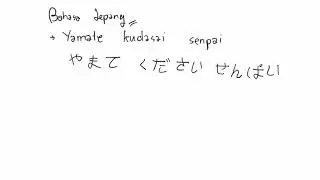 Bahasa Jepang
→ Yamate kudasai senpai
やまて ください せんぱい